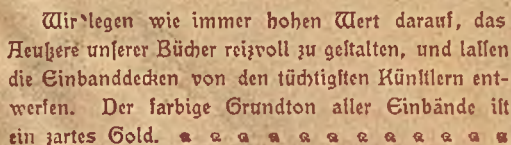 Wir legen wie immer hohen Wert darauf, das
Aeußere unserer Bücher reizvoll zu gestalten, und lassen
die Einbanddecken von den tüchtigsten Künstlern ent-
werfen. Der farbige Grundton aller Einbände ist
ein zartes Gold.